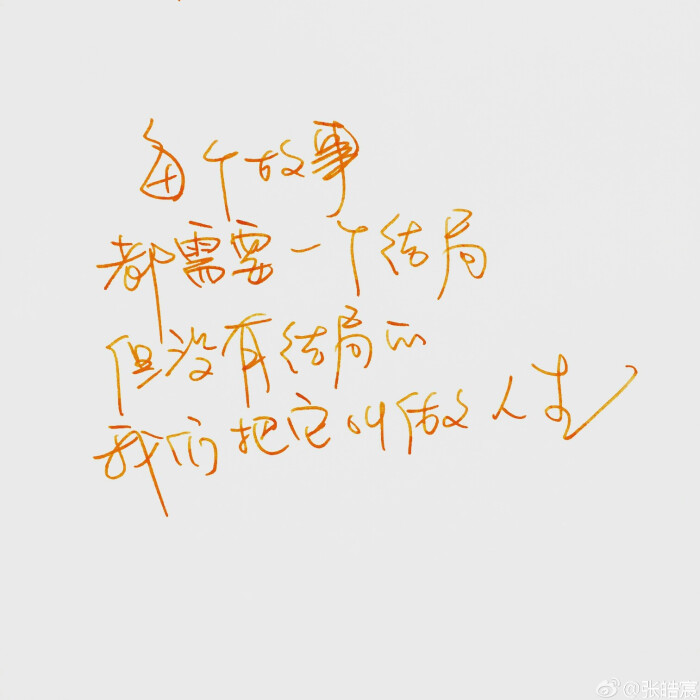 每个故事
都需要一个结局
但没有结局的
我们把它叫做人生
@张皓宸